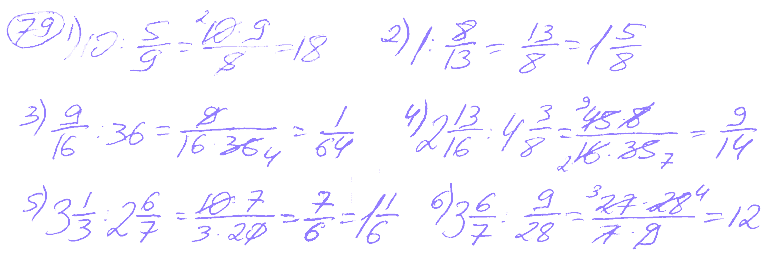 79 1) 10 : 5/9 = 10·9/8 = 18 2) 1 : 8/13 = 13/8 = 1 5/8
3) 9/16 : 36 = 9/16·36 = 1/64 4) 2 13/16 : 4 3/8 = 45·8/16·35 = 9/14
5) 3 1/3 : 2 6/7 = 10·7/3·20 = 7/6 = 1 1/6 6) 3 6/7 : 9/28 = 27·28/7·9 = 12